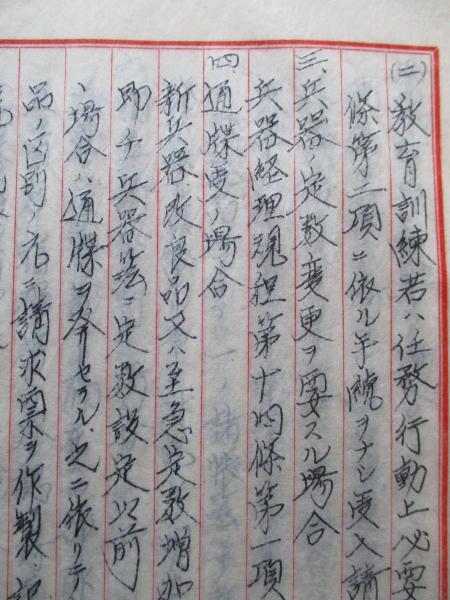 (二)教育訓練若ハ任務行動上必要
條第二項ニ依ル手續ヲナシ受入請
三、兵器ノ定数変更ヲ要スル場合
兵器経理規程第十四條第一項
四、通牒受ノ場合
新兵器、改良品又ハ至急定数増加
即チ兵器簿ニ定数設定以前
ノ場合ハ通牒ヲ発セラル、之ニ依リテ
品ノ区別ノ下ニ請求票ヲ作製、記